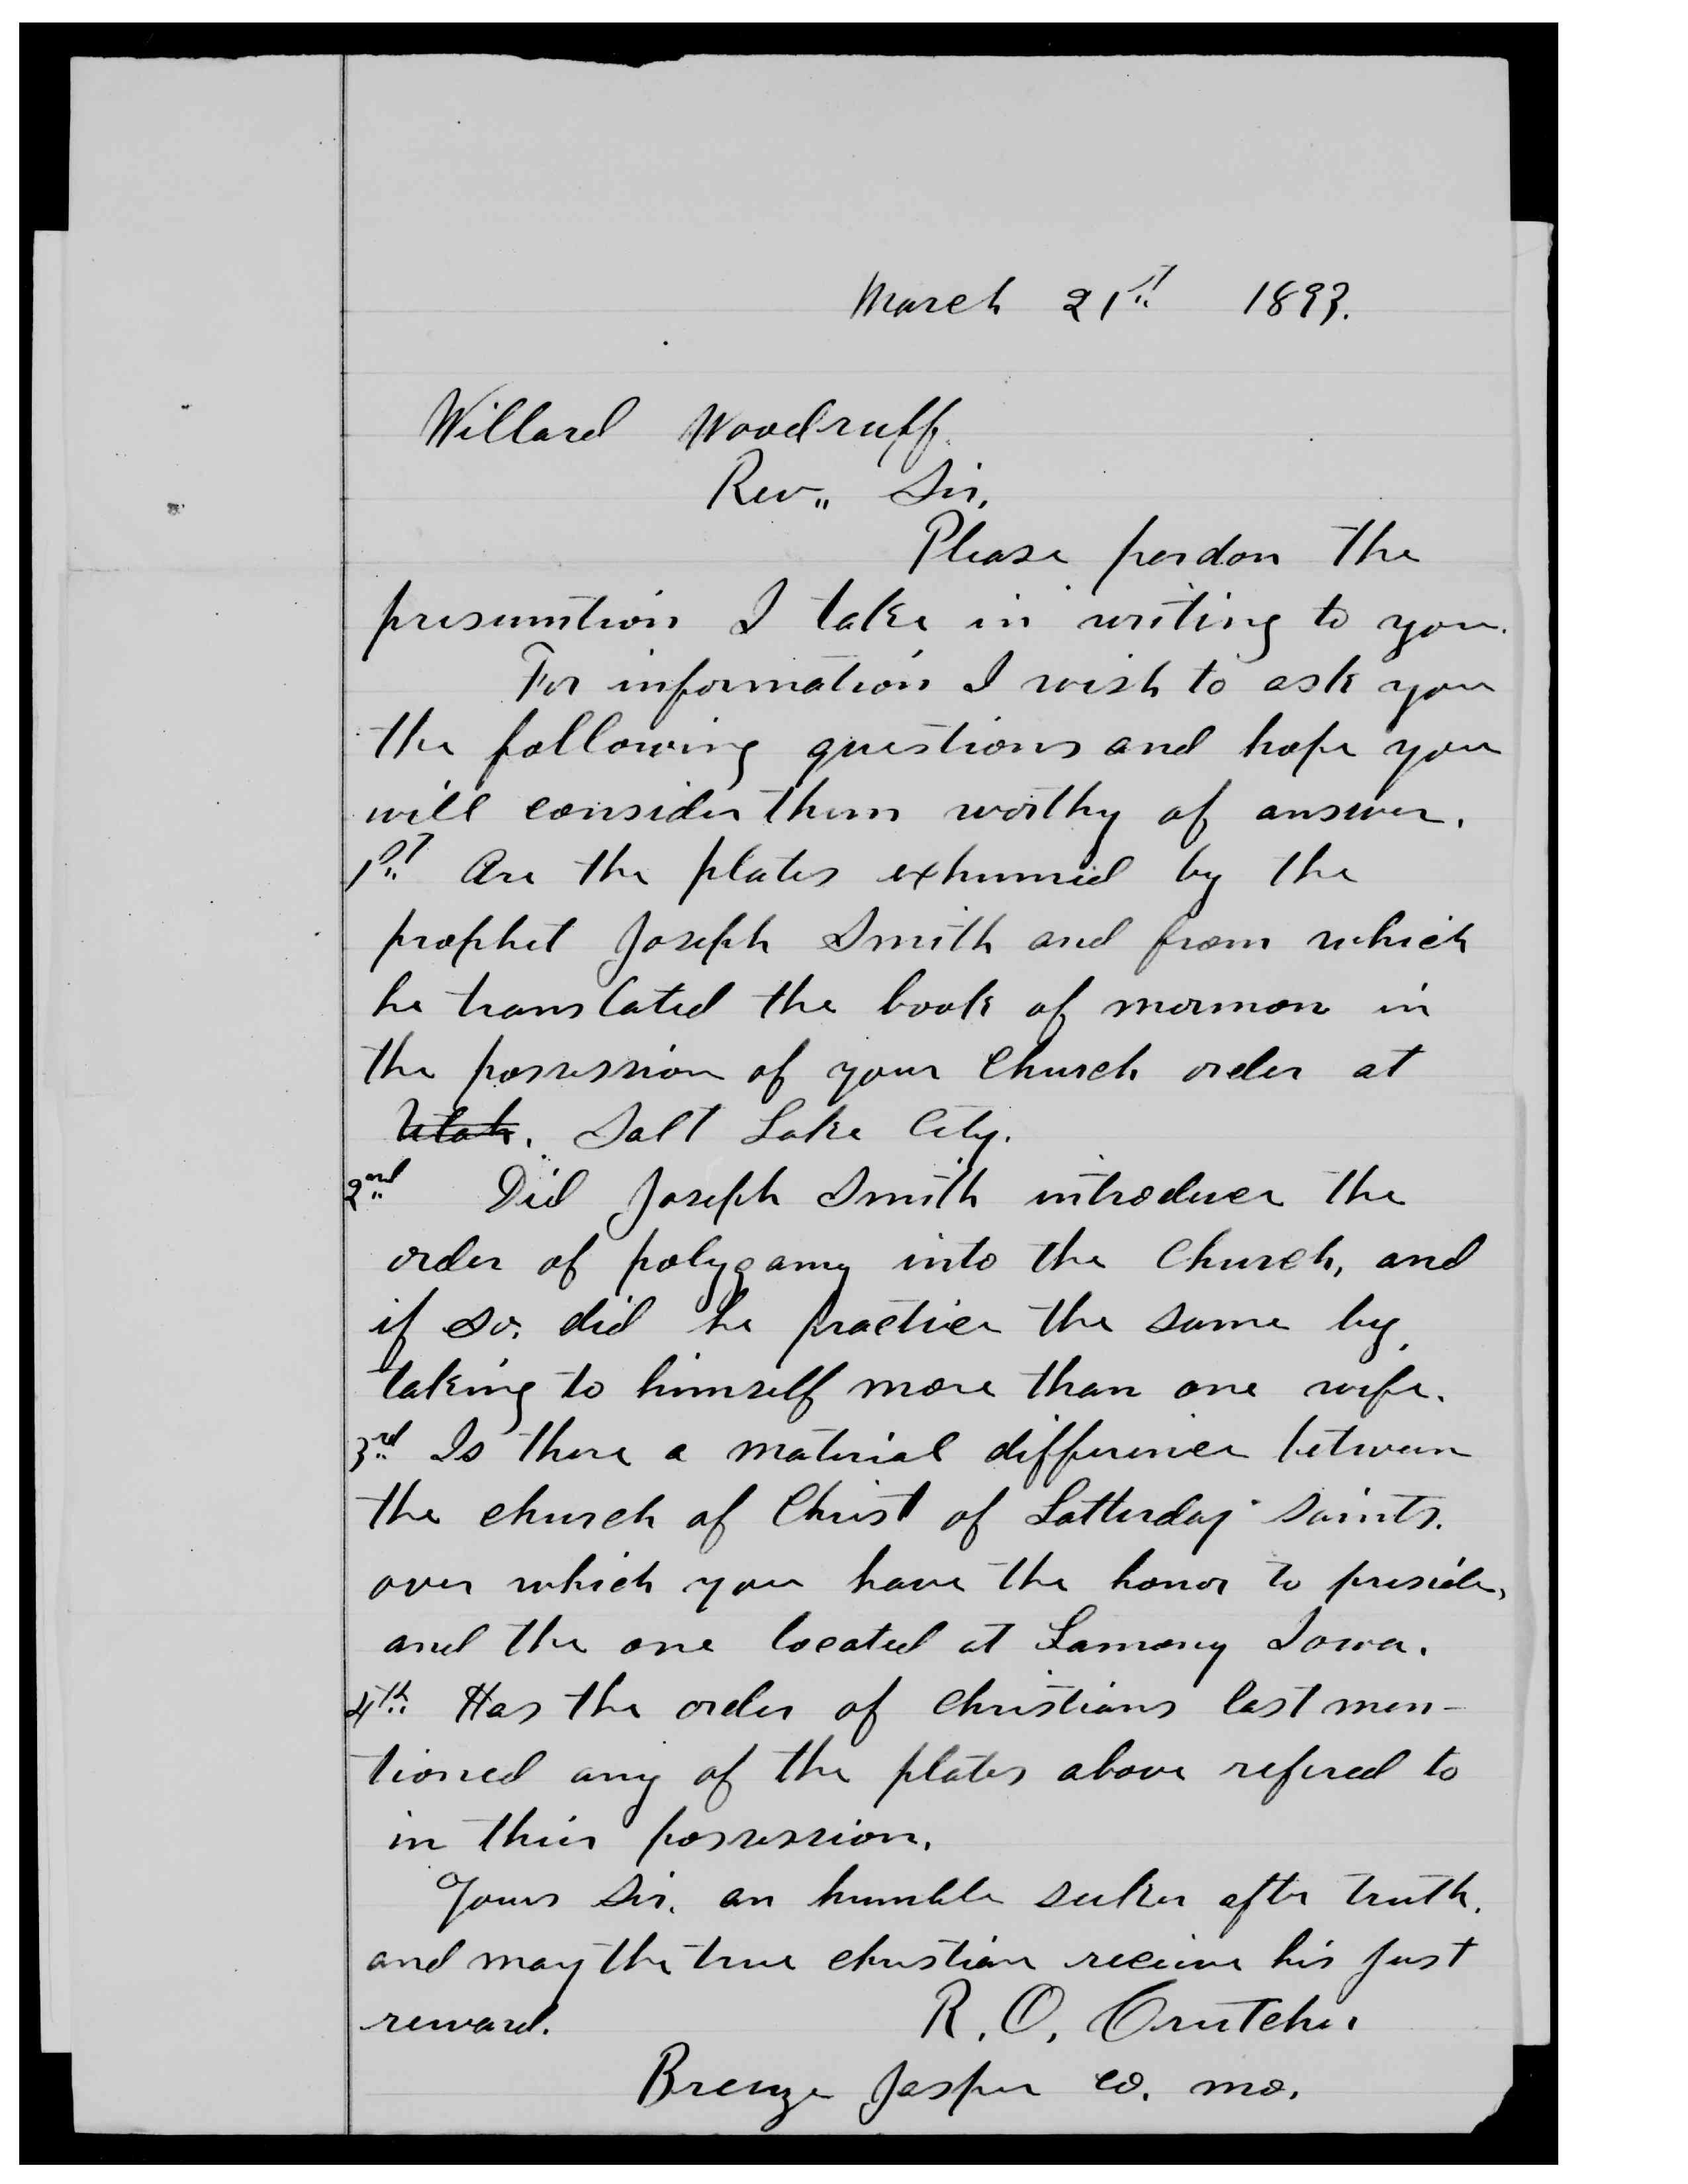 March 21st 1893.
Willard Woodruff.
Rev. Sir,
Please pardon the
presumtion I take in writing to you.
For information I wish to ask you
the following questions and hope you
will consider them worthy of answer.
1st Are the plates exhumed by the
prophet Joseph Smith and from which
he translated the book of mormon in
the possession of your Church order at
Utah. Salt Lake City.
2nd Did Joseph Smith introduce the
order of polygamy into the Church, and
if so. did he practice the same by
taking to himself more than one wife.
3rd Is there a material difference between
the church of Christ of Latterday Saints.
over which you have the honor to preside,
and the one located at Lamony Iowa.
4th Has the order of Christians last men-
tioned any of the plates above refered to
in thier possession.
Yours Sir. an humble seeker after truth.
and may the true christian receive his just
reward. R. O. Crutcher
Jasper co. mo.